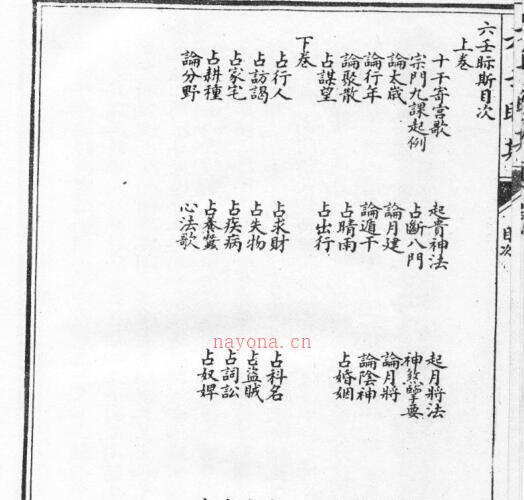 六壬眎斯目次
上卷
十干寄宮歌 起貴神法 起月將法
宗門九課起例 占斷八門 神煞擧要
論太歲 論月建 論月將
論行年 論遁干 論陰神
論聚散 占晴雨 占婚姻
占謀望 占出行
下卷
占行人 占求財 占科名
占訪謁 占失物 占盜賊
占家宅 占疾病 占詞訟
占耕種 占養蠶 占奴婢
論分野 心法歌
目次
nayona.cn